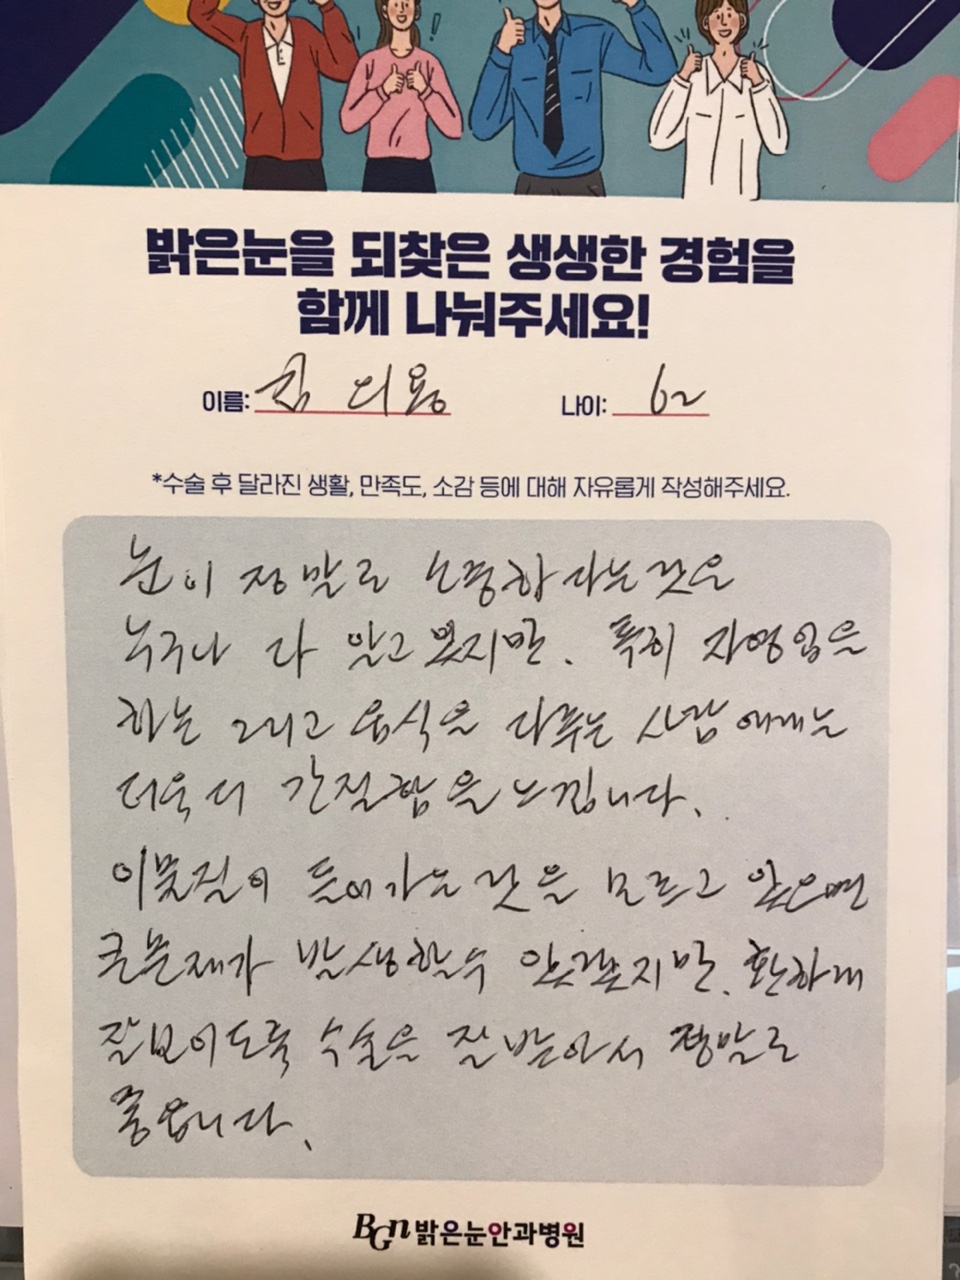 밝은눈을 되찾은 생생한 경험을
함께 나눠주세요!
이름: 김 더용 나이: 62
*수술 후 달라진 생활, 만족도, 소감 등에 대해 자유롭게 작성해주세요.
눈이 정말로 소중하다는것은
누구나 다 알고 있지만. 특히 자영업을
하는 그리고 음식을 다루는 사람에게는
더욱 더 간절함을 느낍니다.
이물질이 들어가는 것을 모르고 있으면
큰문제가 발생할수 있겠지만. 환하게
잘보이도록 수술을 잘 받아서 정말로
좋습니다.
BGn 밝은눈안과병원